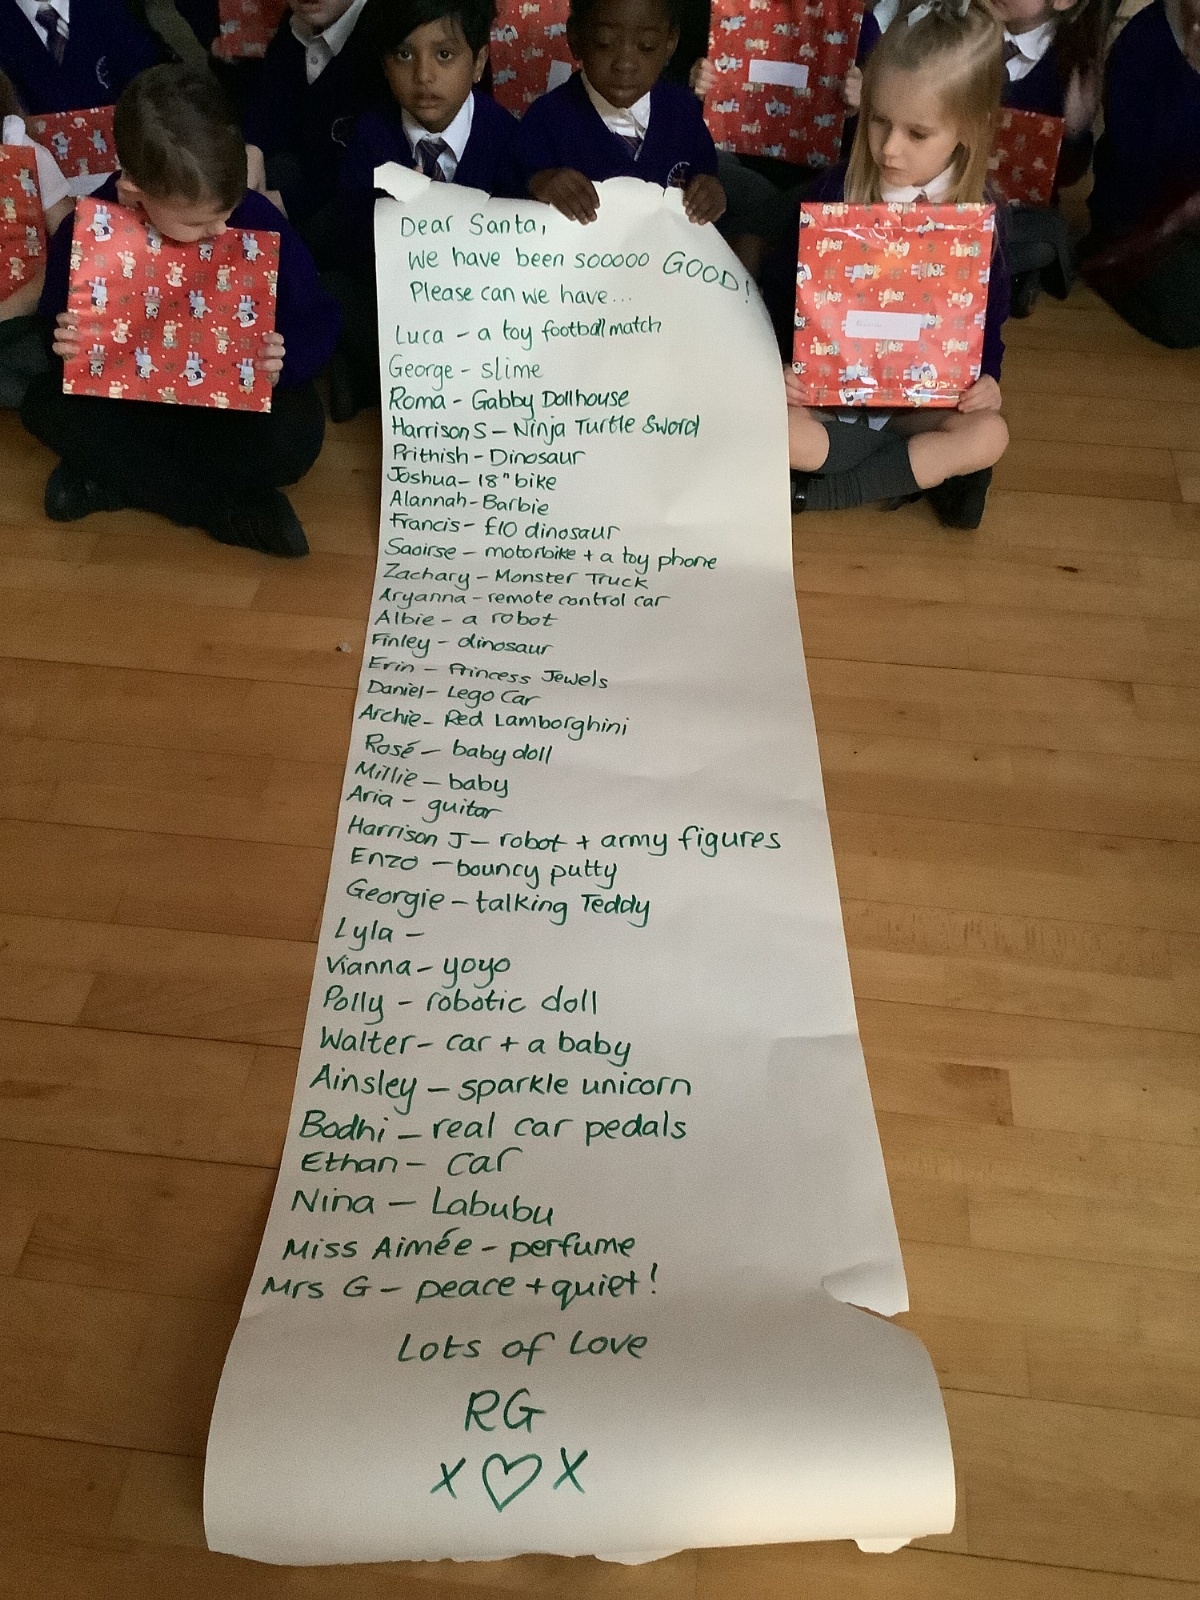 Dear Santa,
We have been sooooo GOOD!
Please can we have...
Luca - a toy football match
George - slime
Roma - Gabby Dollhouse
Harrison S - Ninja Turtle Sword
Prithish - Dinosaur
Joshua - 18" bike
Alannah - Barbie
Francis - £10 dinosaur
Saoirse - motorbike + a toy phone
Zachary - Monster Truck
Aryanna - remote control car
Albie - a robot
Finley - dinosaur
Erin - Princess Jewels
Daniel - Lego Car
Archie - Red Lamborghini
Rosé - baby doll
Millie - baby
Aria - guitar
Harrison J - robot + army figures
Enzo - bouncy putty
Georgie - talking Teddy
Lyla -
Vianna - yoyo
Polly - robotic doll
Walter - car + a baby
Ainsley - sparkle unicorn
Bodhi - real car pedals
Ethan - car
Nina - Labubu
Miss Aimée - perfume
Mrs G - peace + quiet!
Lots of Love
RG
X ♡ X